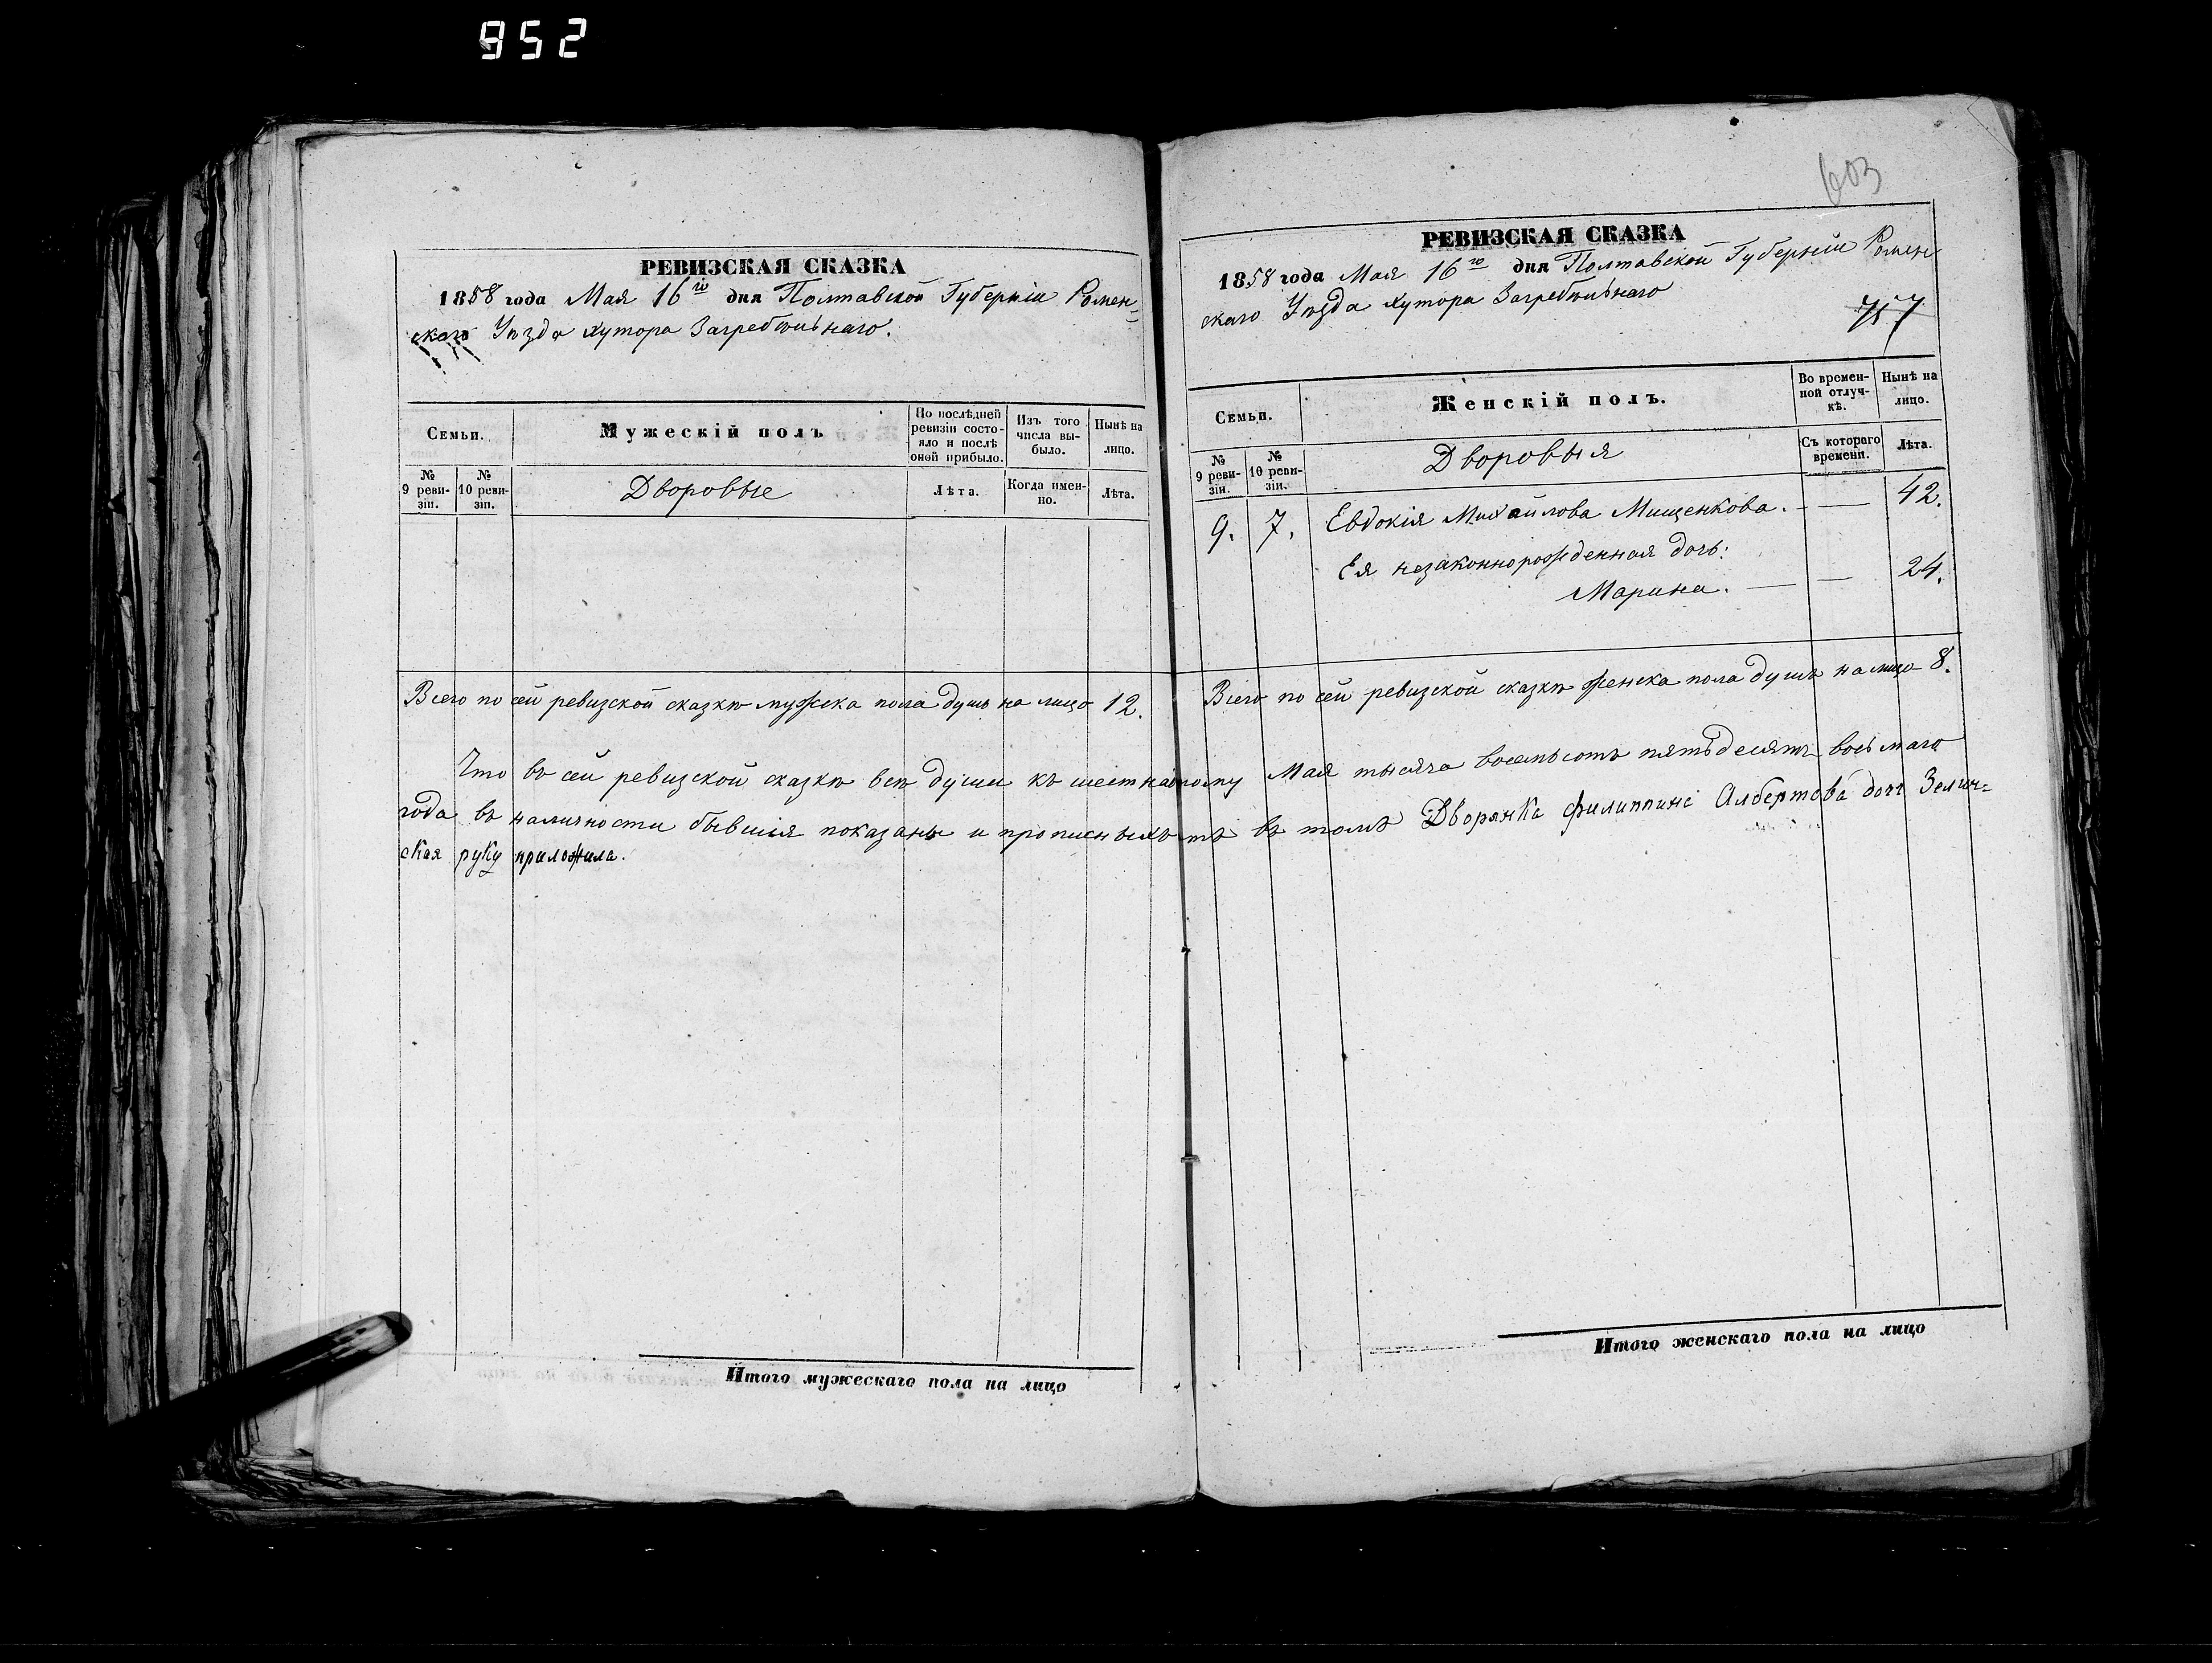 952
РЕВИЗСКАЯ СКАЗКА
1858 года Мая 16го дня Полтавской Губерніи Ромен=
скаго Уѣзда хутора Загребельнаго.
Семьи.
Мужескій полъ
По послѣдней ревизіи состояло и послѣ оной прибыло.
Изъ того числа выбыло.
Нынѣ на лицо.
№ 9 ревизіи.
№ 10 ревизіи.
Дворовые
Лѣта.
Когда именно.
Лѣта.
Всего по сей ревизской сказкѣ мужска пола душъ на лицо 12.
603
РЕВИЗСКАЯ СКАЗКА
1858 года Мая 16го дня Полтавской Губерніи Ромен
скаго Уѣзда хутора Загребельнаго
757
Семьи.
Женскій полъ.
Во временной отлучкѣ.
Нынѣ на лицо.
№ 9 ревизіи.
№ 10 ревизіи.
Дворовыя
Съ котораго времени.
Лѣта.
9. 7. Евдокія Михайлова Мищенкова. - — 42.
Ея незаконнорожденная дочь:
Марина. — — 24.
Всего по сей ревизской сказкѣ женска пола душъ на лицо 8.
Что въ сей ревизской сказкѣ всѣ души къ шестнадцатому Мая тысяча восемьсотъ пятьдесятъ восьмаго
года въ наличности бывшія показаны и прописныхъ нѣтъ въ томъ Дворянка Филиппина Албертова дочь
ская руку приложила.
Итого мужескаго пола на лицо
Итого женскаго пола на лицо